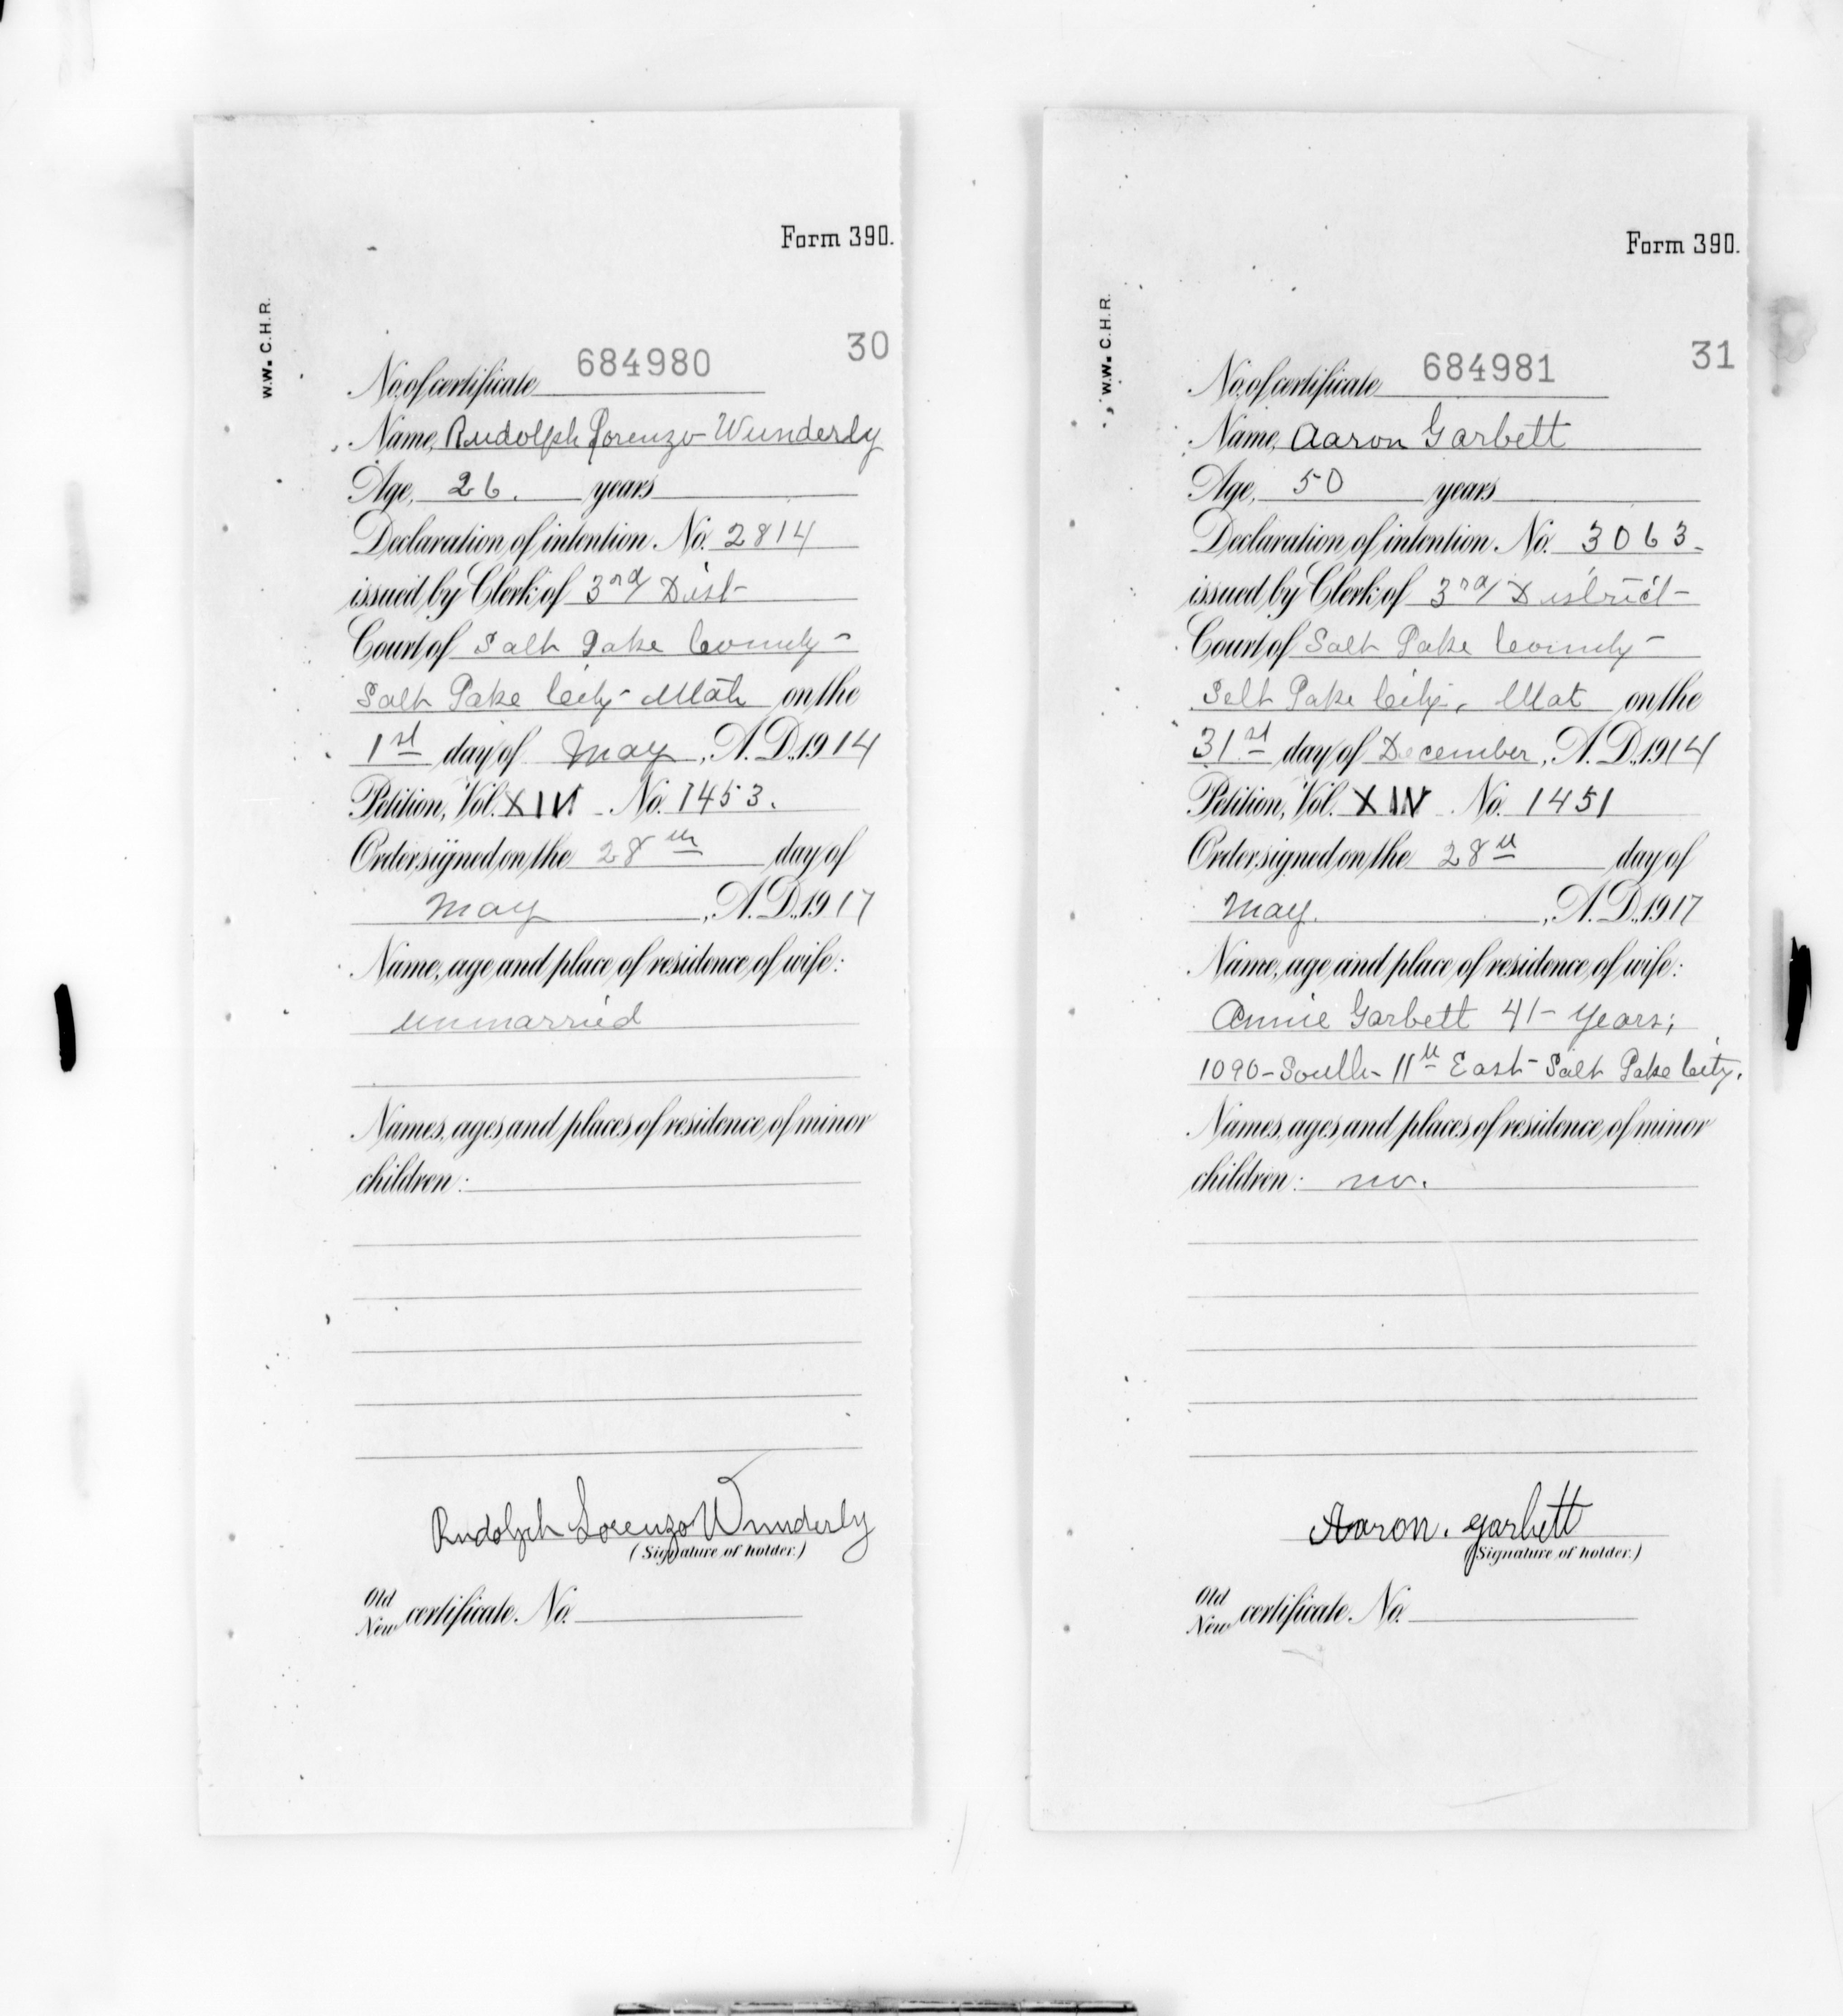 Form 390.
W.W. C.H.R.
30
No. of certificate 684980
Name, Rudolph Lorenzo Wunderly
Age, 26. years
Declaration of intention No. 2814
issued by Clerk of 3rd Dist
Court of Salt Lake County
Salt Lake City Utah on the
1st day of May, A.D. 1914
Petition, Vol. XIV No. 1453.
Order signed on the 28th day of
May, A.D. 1917
Name, age and place of residence of wife:
unmarried
Names, ages and places of residence of minor
children:
Rudolph Lorenzo Wunderly
(Signature of holder.)
Old
New certificate No.
Form 390.
W.W. C.H.R.
31
No. of certificate 684981
Name, Aaron Garbett
Age, 50 years
Declaration of intention No. 3063
issued by Clerk of 3rd District
Court of Salt Lake County
Salt Lake City, Utat on the
31st day of December, A.D. 1914
Petition, Vol. XIV No. 1451
Order signed on the 28th day of
May. A.D. 1917
Name, age and place of residence of wife:
Annie Garbett 41 - years;
1090 - South - 11th East - Salt Lake City.
Names, ages and places of residence of minor
children: no.
Aaron. Garbett
(Signature of holder.)
Old
New certificate No.